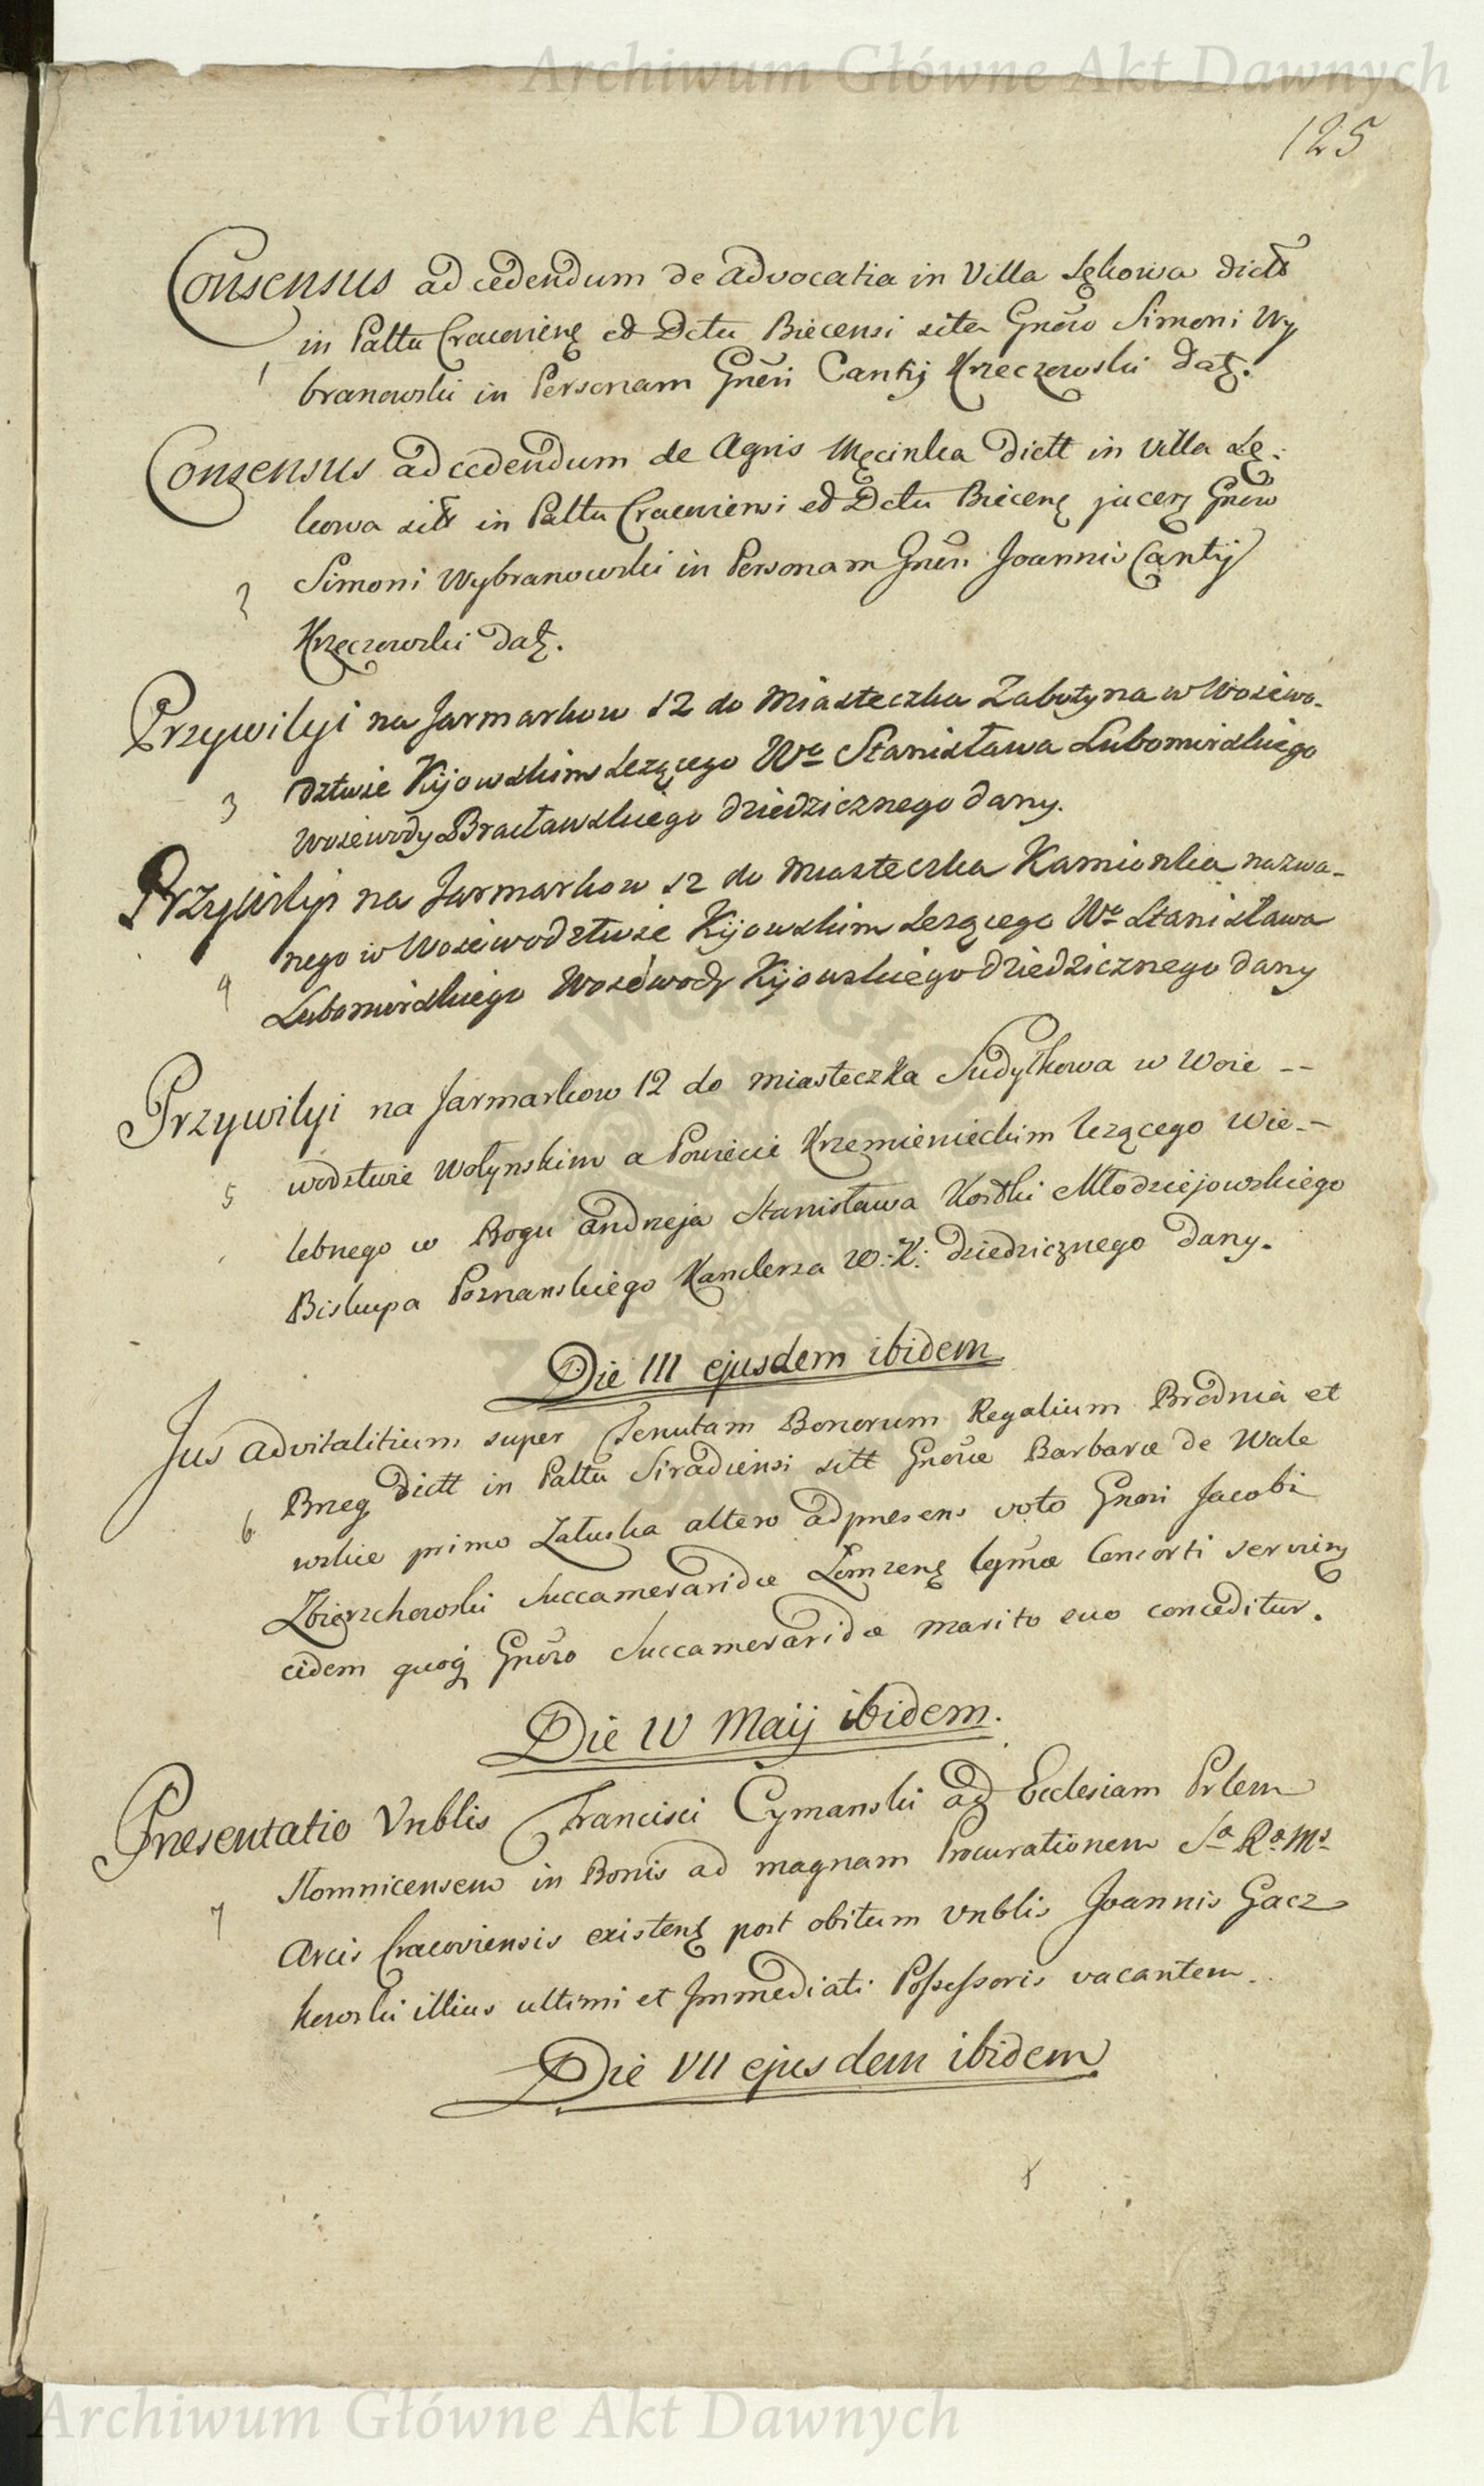 Archiwum Główne Akt Dawnych
125
Consensus ad cedendum de Advocatia in Villa Sękowa dictæ
in Palttu Cracovienę et Dctu Biecensi sita Gnõso Simoni Wy
1 branowski in Personam Gnẽri Cantij Krzeczowski datę.
Consensus ad cedendum de Agris Męcinka dictt in Villa Sę:
kowa sitt in Palttu Cracoviensi et Dctu Biecenę jacenę Gnõso
2 Simoni Wybranowski in Personam Gnẽri Joannis Cantij
Krzeczowski datę.
Przywilyi na Jarmarkow 12 do Miasteczka Zabotyna w Woiewo-
3 dztwie Kijowskim Lezącego Wo Stanisława Lubomirskiego
Woiewody Bracławskiego dziedzicznego dany.
Przywilyi na Jarmarkow 12 do Miasteczka Kamionka nazwa-
nego w Woiewodztwie Kijowskim Lezącego Wo Stanisława
4 Lubomirskiego Woiewody Kijowskiego dziedzicznego dany
Przywilyi na Jarmarkow 12 do miasteczka Sudyłkowa w Woie --
5 wodztwie Wołynskim a Powiecie Krzemienieckim lezącego Wie--
lebnego w Bogu Andrzeja Stanisława Kostki Młodziejowskiego
Biskupa Poznanskiego Kanclerza W: K: dziedzicznego dany.
Die III ejusdem ibidem
Jus advitalitium super Tenutam Bonorum Regalium Brodnia et
6 Brzeg dictt in Palttu Siradiensi sitt Gnõsæ Barbaræ de Wale
wskie primo Załuska altero ad præsens voto Gnõri Jacobi
Zbierzchowski Succameraridæ Lomzenę lgmæ Consorti servienę
eidem quoqȝ Gnõso Succameraridæ marito suo conceditur.
Die IV Maij ibidem.
Præsentatio Vnblis Francisci Cymanski ad Ecclesiam Prlem
Słomnicensem in Bonis ad magnam Procurationem Sa Ra Ms
7 Arcis Cracoviensis existenę post obitum Vnblis Joannis Gacz
kowski illius ultimi et Immediati Possessoris vacantem.
Die VII ejusdem ibidem
Archiwum Główne Akt Dawnych